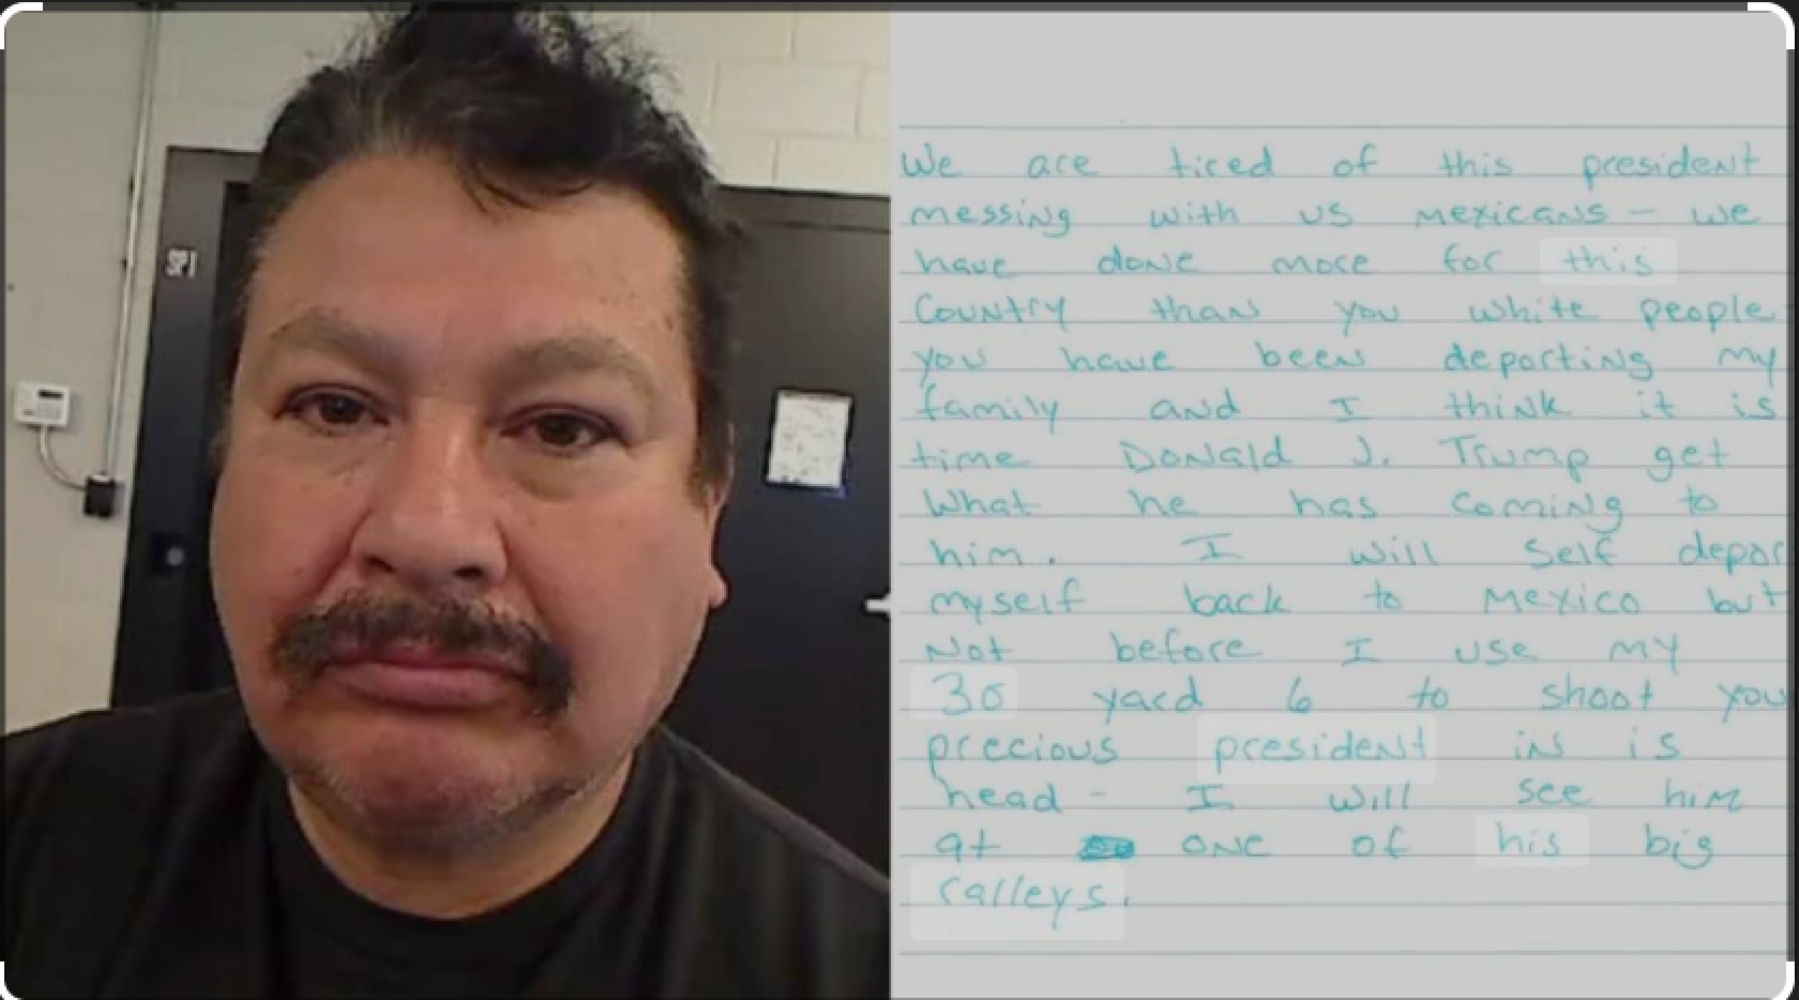 SPI
We are tired of this president
messing with us mexicans - we
have done more for this
Country than you white people
you have been deporting my
family and I think it is
time Donald J. Trump get
what he has coming to
him. I will self depor
myself back to mexico but
Not before I use my
30 yard 6 to shoot you
precious president in is
head - I will see him
at one of his big
ralleys.